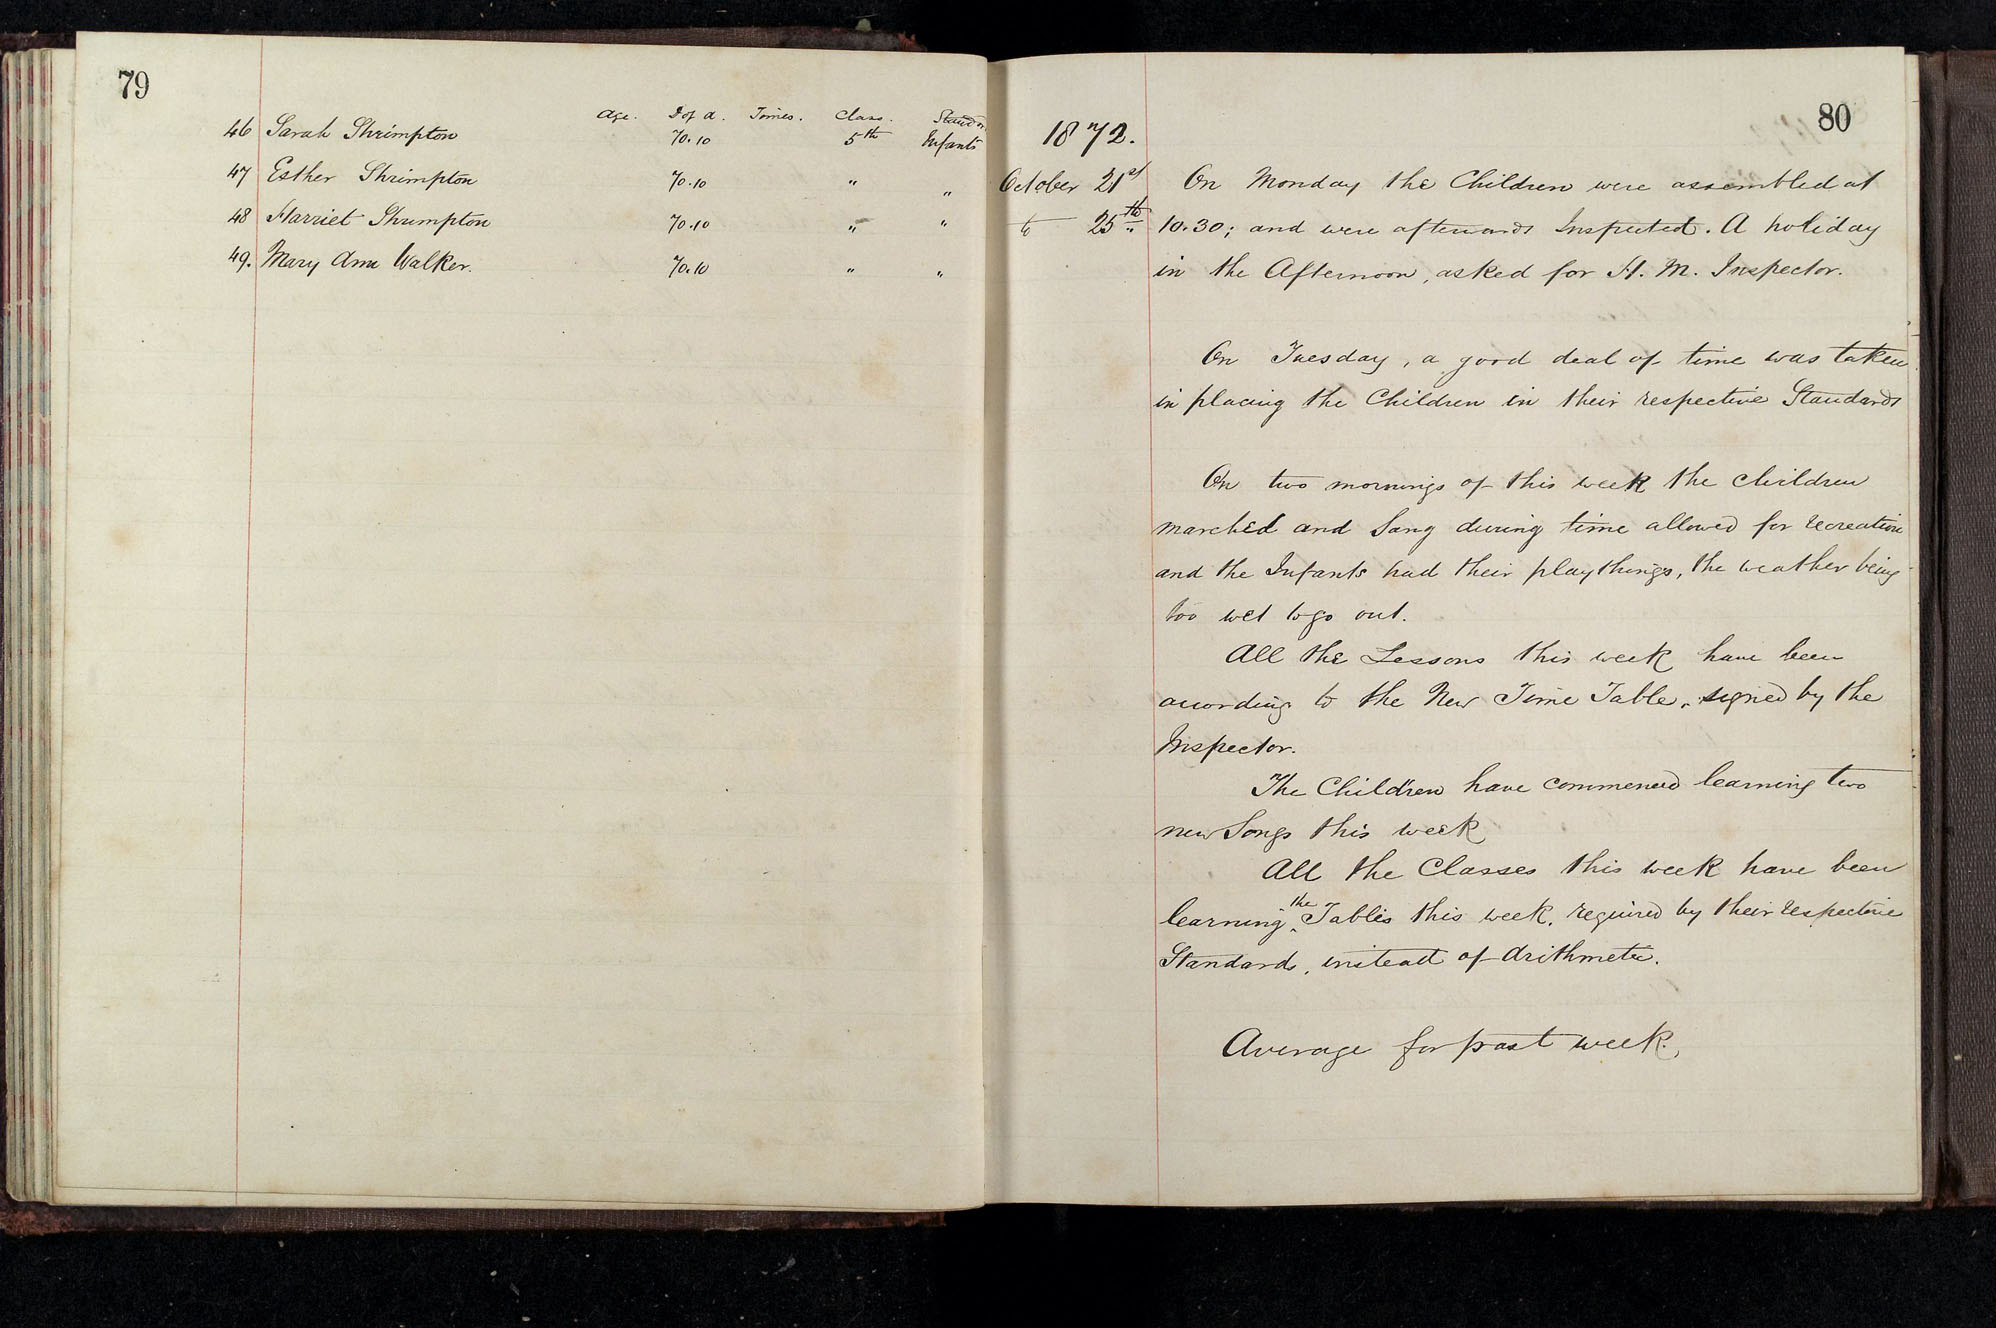 79
Age. D of A. Times. Class. Stand
46 Sarah Shrimpton 70.10 5th Infants
47 Esther Shrimpton 70.10 " "
48 Harriet Shrimpton 70.10 " "
49. Mary Ann Walker. 70.10 " "
80
1872.
October 21st On Monday the Children were assembled at
to 25th 10.30; and were afterwards Inspected. A holiday
in the Afternoon, asked for H. M. Inspector.
On Tuesday, a good deal of time was taken
in placing the Children in their respective Standards
On two mornings of this week the children
marched and Sang during time allowed for recreation
and the Infants had their playthings, the weather being
too wet to go out.
All the Lessons this week have been
according to the New Time Table, signed by the
Inspector.
The Children have commenced learning two
new Songs this week
All the Classes this week have been
learning the Tables this week, required by their respective
Standards, instead of Arithmetic.
Average for past week.